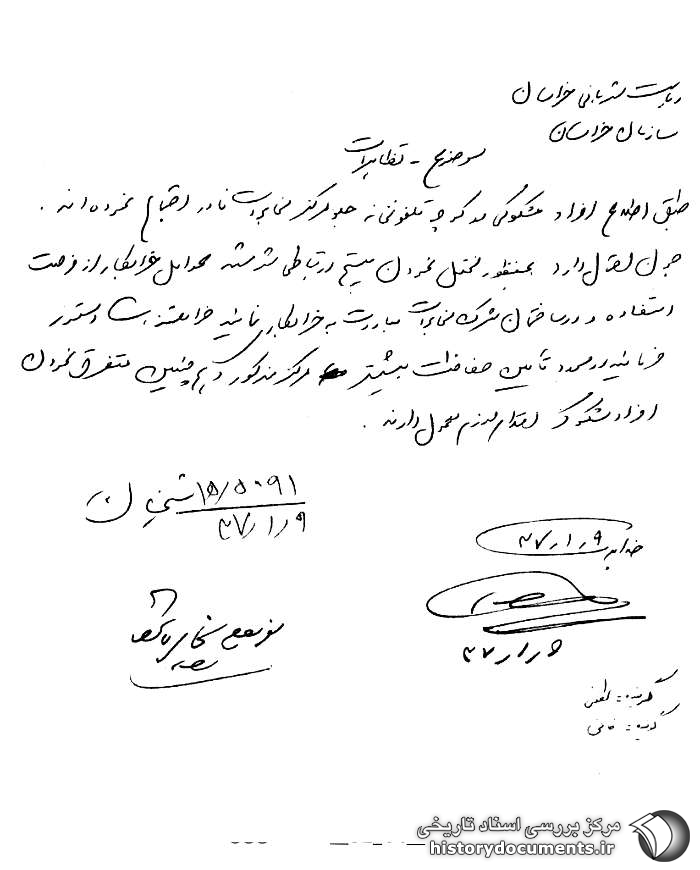 ریاست شهربانی خراسان
سازمان خراسان
موضوع - تظاهرات
طبق اطلاع افراد مشکوکی در کوچه تلفونخانه جلو مرکز مخابرات نادر اجتماع نموده اند .
چون احتمال دارد بمنظور مختل نمودن سیستم ارتباطی شهر مشهد عوامل خرابکار از فرصت
استفاده و در ساختمان شرکت مخابرات مبادرت به خرابکاری نمایند خواهشمند است دستور
فرمائید در مورد تأمین حفاظت بیشتر مرکز مذکور و همچنین متفرق نمودن
افراد مشکوک اقدام لازم معمول دارند .
۱۵/۵۰۹۱
۳۷/۱/۹
۳۷/۱/۹
۳۷/۱/۹
گیرنده :
مرکز بررسی اسناد تاریخی
historydocuments.ir